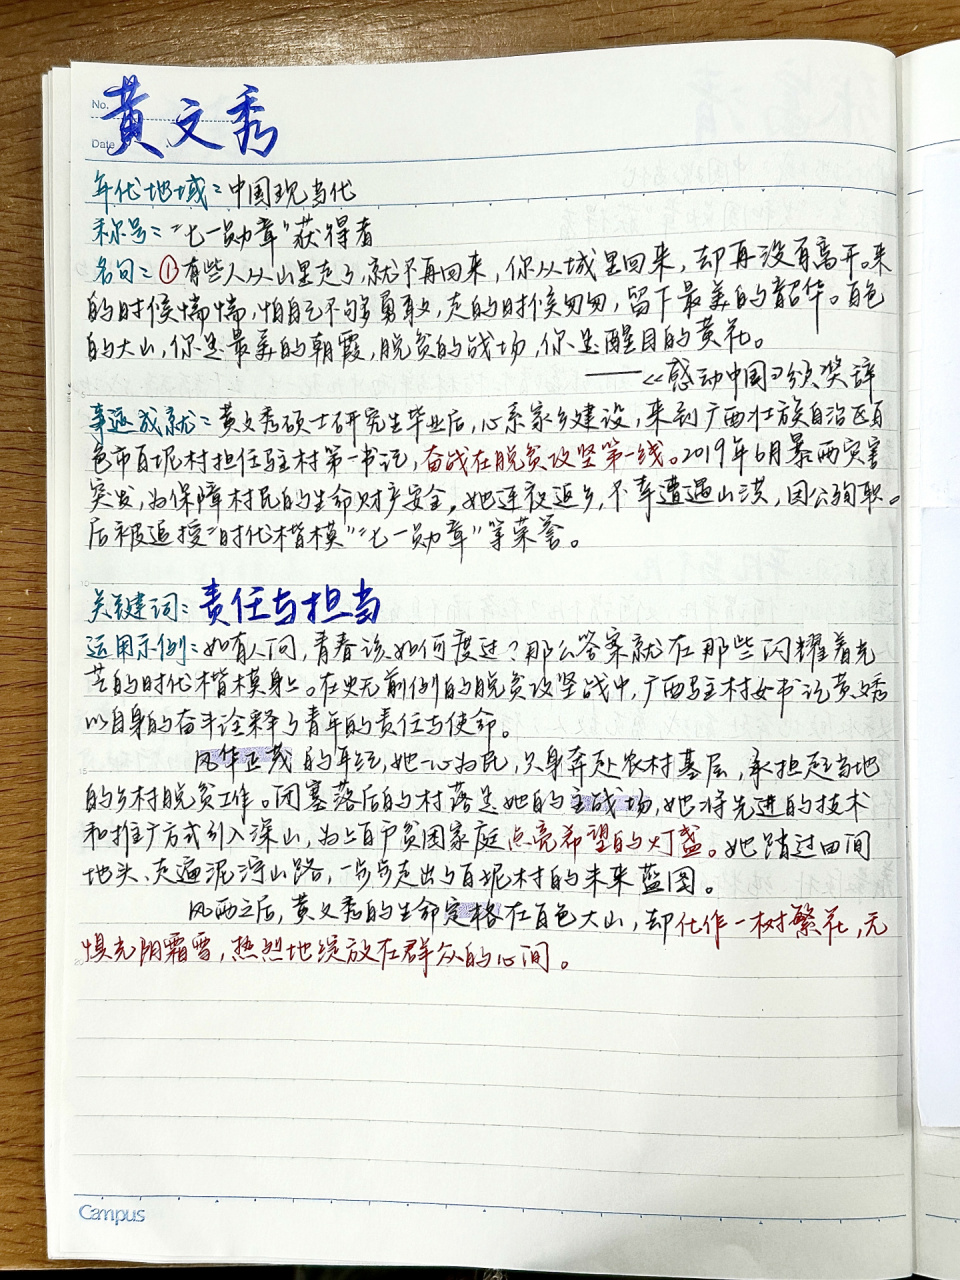 No.
Date
黄文秀
年代地域：中国现当代
称号："七一勋章"获得者
名句：①有些人从山里走了，就不再回来，你从城里回来，却再没有离开。来
的时候惴惴，怕自己不够勇敢，走的时候匆匆，留下最美的韶华。百色
的大山，你是最美的朝霞，脱贫的战场，你是醒目的黄花。
——《感动中国》颁奖辞
事迹成就：黄文秀硕士研究生毕业后，心系家乡建设，来到广西壮族自治区百
色市百坭村担任驻村第一书记，奋战在脱贫攻坚第一线。2019年6月暴雨灾害
突发，为保障村民的生命财产安全，她连夜返乡，不幸遭遇山洪，因公殉职。
后被追授"时代楷模""七一勋章"等荣誉。
关键词：责任与担当
运用示例：如有人问，青春该如何度过？那么答案就在那些闪耀着光
芒的时代楷模身上。在史无前例的脱贫攻坚战中，广西驻村女书记黄文秀
以自身的奋斗诠释了青年的责任与使命。
风华正茂的年纪，她一心为民，只身奔赴农村基层，承担起当地
的乡村脱贫工作。闭塞落后的村落是她的主战场，她将先进的技术
和推广方式引入深山，为上百户贫困家庭点亮希望的灯盏。她踏过田间
地头、走遍泥泞山路，一步步走出了百坭村的未来蓝图。
风雨之后，黄文秀的生命定格在百色大山，却化作一树繁花，无
惧光阴霜雪，热烈地绽放在群众的心间。
Campus